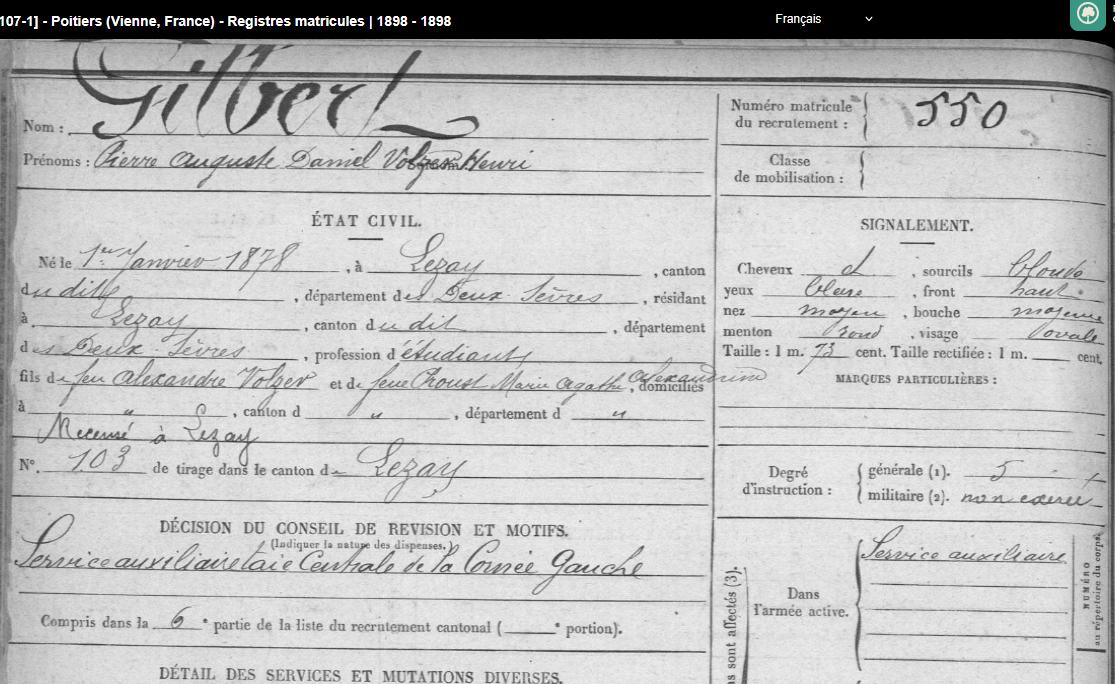 107-1] - Poitiers (Vienne, France) - Registres matricules | 1898 - 1898
Français
Gilbert
Nom :
Prénoms : Pierre Auguste Daniel Volzer Henri
Numéro matricule
du recrutement : 550
Classe
de mobilisation :
ÉTAT CIVIL.
Né le 1er Janvier 1878, à Lezay, canton
dudit, département des Deux-Sèvres, résidant
à Lezay, canton dudit, département
des Deux-Sèvres, profession d'étudiant
fils de feu Alexandre Volzer et de feue Proust Marie Agathe Alexandrine, domiciliés
à " , canton d " , département d "
Recensé à Lezay
N° 103 de tirage dans le canton de Lezay
SIGNALEMENT.
Cheveux d , sourcils blonds
yeux bleus , front haut
nez moyen , bouche moyenne
menton rond , visage ovale
Taille : 1 m. 73 cent. Taille rectifiée : 1 m. cent.
MARQUES PARTICULIÈRES :
Degré
d'instruction :
générale (1). 5
militaire (2). non exercé
DÉCISION DU CONSEIL DE REVISION ET MOTIFS.
(Indiquer la nature des dispenses.)
Service auxiliaire taie Centrale de la Cornée Gauche
Compris dans la 6e partie de la liste du recrutement cantonal ( e portion).
DÉTAIL DES SERVICES ET MUTATIONS DIVERSES.
ns sont affectés (3).
Dans
l'armée active.
Service auxiliaire
NUMÉRO
au répertoire du corps